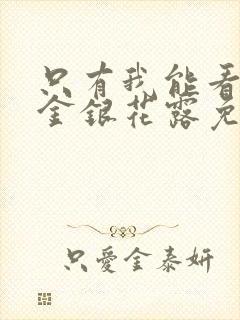 只有我能看
金銀花露免
只愛金泰妍